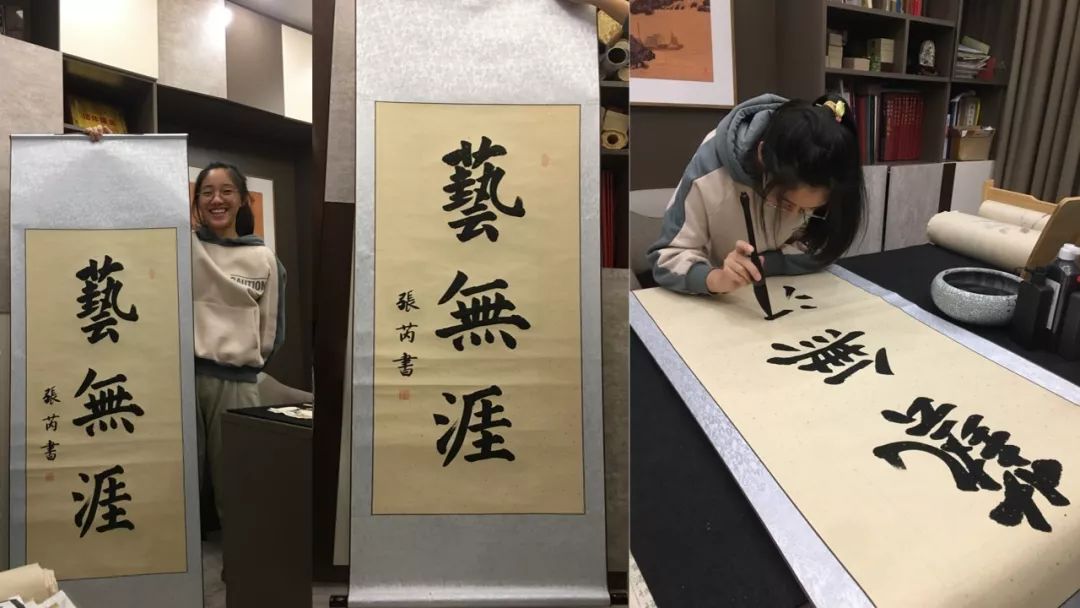 藝無涯
張芮書
CAUTION
藝無涯
張芮書
藝無